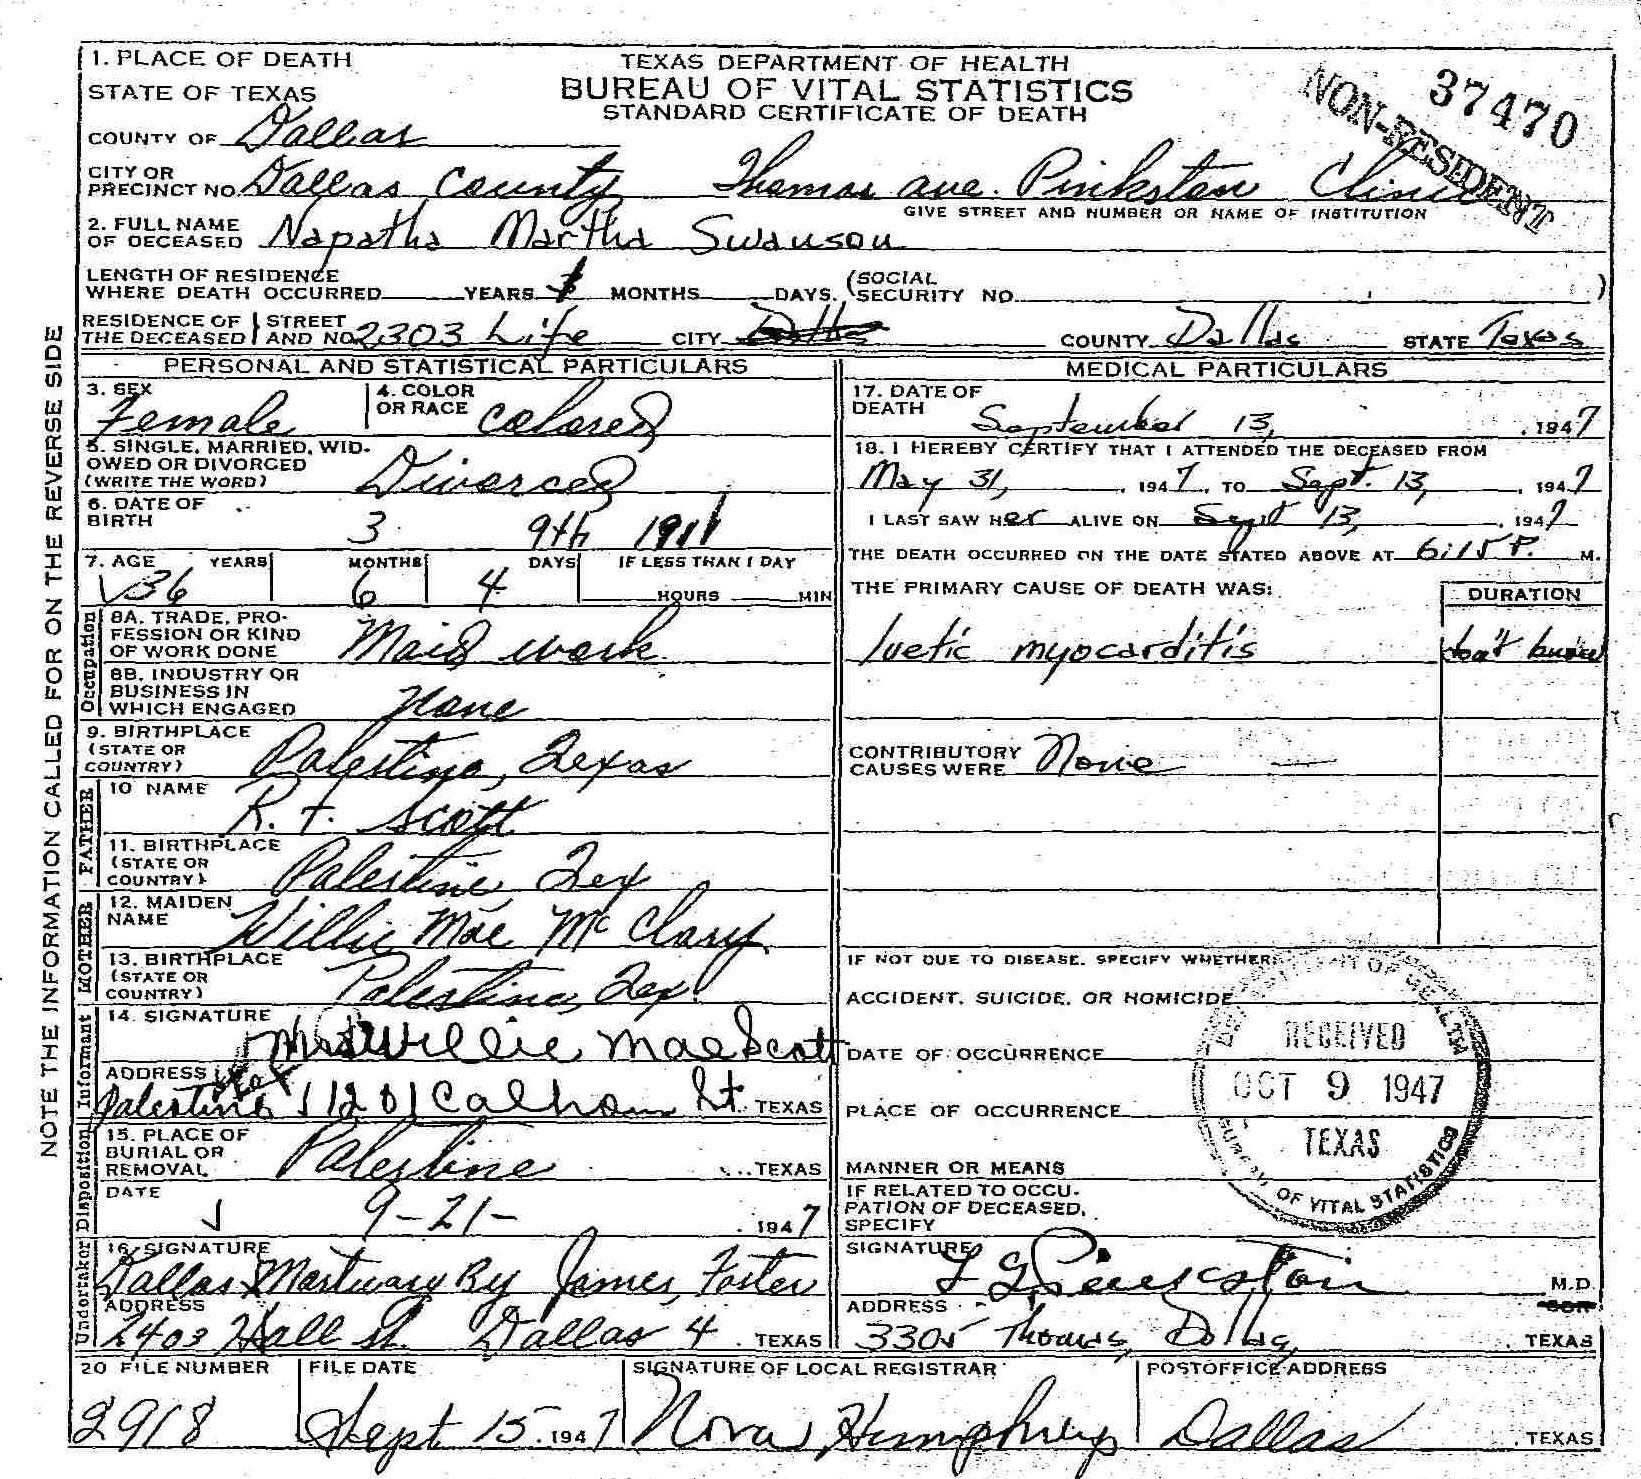 1. PLACE OF DEATH
STATE OF TEXAS
COUNTY OF Dallas
TEXAS DEPARTMENT OF HEALTH
BUREAU OF VITAL STATISTICS
STANDARD CERTIFICATE OF DEATH
37470
NON-RESIDENT
CITY OR PRECINCT NO. Dallas County Thomas ave. Pinkston Clinic
GIVE STREET AND NUMBER OR NAME OF INSTITUTION
2. FULL NAME OF DECEASED Napatha Martha Swanson
LENGTH OF RESIDENCE WHERE DEATH OCCURRED YEARS MONTHS DAYS. (SOCIAL SECURITY NO. )
RESIDENCE OF THE DECEASED STREET AND NO. 2303 Life CITY COUNTY Dallas STATE Texas
PERSONAL AND STATISTICAL PARTICULARS
3. SEX Female
4. COLOR OR RACE Colored
5. SINGLE, MARRIED, WIDOWED OR DIVORCED (WRITE THE WORD) Divorced
6. DATE OF BIRTH 3 9th 1911
7. AGE YEARS MONTHS DAYS IF LESS THAN 1 DAY
36 6 4 HOURS MIN
Occupation
8A. TRADE, PROFESSION OR KIND OF WORK DONE Maid work
8B. INDUSTRY OR BUSINESS IN WHICH ENGAGED None
9. BIRTHPLACE (STATE OR COUNTRY) Palestine, Texas
FATHER
10 NAME R. T. Scott
11. BIRTHPLACE (STATE OR COUNTRY) Palestine, Tex
MOTHER
12. MAIDEN NAME Willie Mae Mc Clary
13. BIRTHPLACE (STATE OR COUNTRY) Palestine, Tex
Informant
14. SIGNATURE Mrs Willie Mae Scott
ADDRESS Palestine 1201 Calhoun St. TEXAS
Disposition
15. PLACE OF BURIAL OR REMOVAL Palestine TEXAS
DATE 9-21- 1947
Undertaker
16. SIGNATURE Dallas Mortuary By James Foster
ADDRESS 2403 Hall St. Dallas 4 TEXAS
MEDICAL PARTICULARS
17. DATE OF DEATH September 13, 1947
18. I HEREBY CERTIFY THAT I ATTENDED THE DECEASED FROM
May 31, 1947, TO Sept. 13, 1947
I LAST SAW Her ALIVE ON Sept 13, 1947
THE DEATH OCCURRED ON THE DATE STATED ABOVE AT 6:15 P. M.
THE PRIMARY CAUSE OF DEATH WAS: DURATION
luetic myocarditis don't know
CONTRIBUTORY CAUSES WERE None
IF NOT DUE TO DISEASE, SPECIFY WHETHER:
ACCIDENT, SUICIDE, OR HOMICIDE
DATE OF OCCURRENCE
PLACE OF OCCURRENCE
MANNER OR MEANS
IF RELATED TO OCCUPATION OF DECEASED, SPECIFY
RECEIVED
OCT 9 1947
TEXAS
BUREAU OF VITAL STATISTICS
SIGNATURE L G Pinkston M.D.
ADDRESS 3305 Thomas, Dallas, TEXAS
20 FILE NUMBER FILE DATE SIGNATURE OF LOCAL REGISTRAR POSTOFFICE ADDRESS
2918 Sept 15 1947 Nora Humphreys Dallas TEXAS
NOTE THE INFORMATION CALLED FOR ON THE REVERSE SIDE